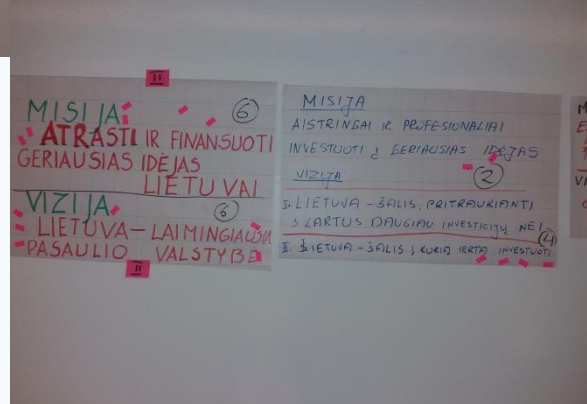 II
MISIJA:
6
ATRASTI IR FINANSUOTI
GERIAUSIAS IDĖJAS
LIETUVAI
VIZIJA
6
LIETUVA – LAIMINGIAUSIA
PASAULIO VALSTYBĖ
II
MISIJA
AISTRINGAI IR PROFESIONALIAI
INVESTUOTI Į GERIAUSIAS IDĖJAS
VIZIJA
2
I. LIETUVA – ŠALIS, PRITRAUKIANTI
KARTUS DAUGIAU INVESTICIJŲ NEI...
4
II. LIETUVA – ŠALIS Į KURIĄ VERTA INVESTUOTI